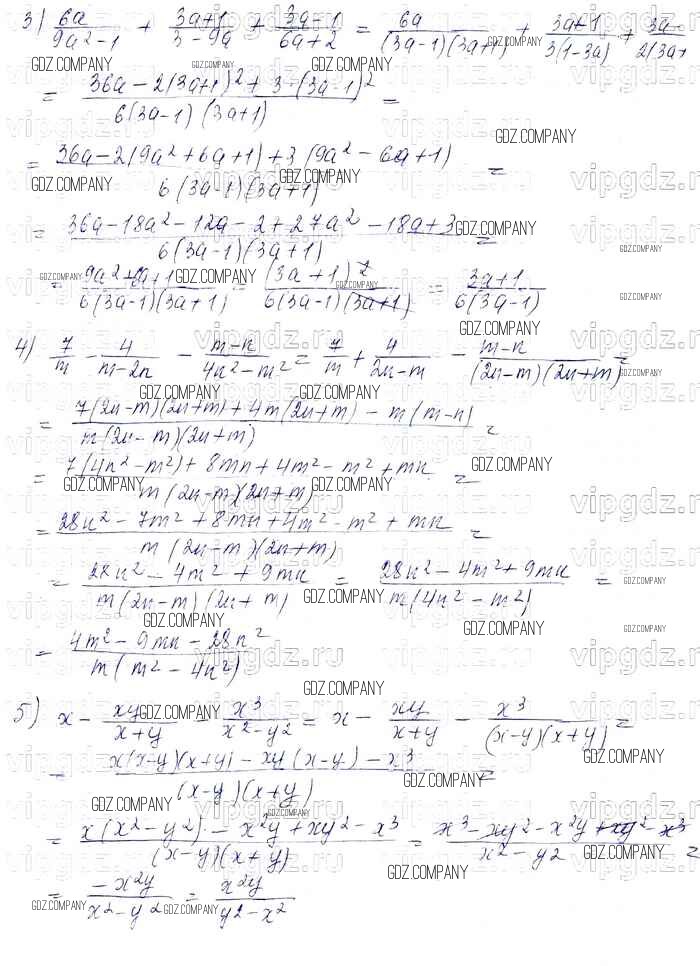 3) 6a/(9a²-1) + (3a+1)/(3-9a) + (3a-1)/(6a+2) = 6a/((3a-1)(3a+1)) + (3a+1)/(3(1-3a)) + (3a-/(2(3a+
= (36a-2(3a+1)²+3·(3a-1)²)/(6(3a-1)(3a+1)) =
= (36a-2(9a²+6a+1)+3(9a²-6a+1))/(6(3a-1)(3a+1)) =
= (36a-18a²-12a-2+27a²-18a+3)/(6(3a-1)(3a+1)) =
= (9a²+6a+1)/(6(3a-1)(3a+1)) = (3a+1)²/(6(3a-1)(3a+1)) = (3a+1)/(6(3a-1))
4) 7/m - 4/(m-2n) - (m-n)/(4n²-m²) = 7/m + 4/(2n-m) - (m-n)/((2n-m)(2n+m)) =
= (7(2n-m)(2n+m)+4m(2n+m)-m(m-n))/(m(2n-m)(2n+m)) =
= (7(4n²-m²)+8mn+4m²-m²+mn)/(m(2n-m)(2n+m)) =
= (28n²-7m²+8mn+4m²-m²+mn)/(m(2n-m)(2n+m)) =
= (28n²-4m²+9mn)/(m(2n-m)(2n+m)) = (28n²-4m²+9mn)/(m(4n²-m²)) =
= (4m²-9mn-28n²)/(m(m²-4n²))
5) x - xy/(x+y) - x³/(x²-y²) = x - xy/(x+y) - x³/((x-y)(x+y)) =
= (x(x-y)(x+y)-xy(x-y)-x³)/((x-y)(x+y)) =
= (x(x²-y²)-x²y+xy²-x³)/((x-y)(x+y)) = (x³-xy²-x²y+xy²-x³)/(x²-y²) =
= -x²y/(x²-y²) = x²y/(y²-x²)
GDZ.COMPANY
vipgdz.ru